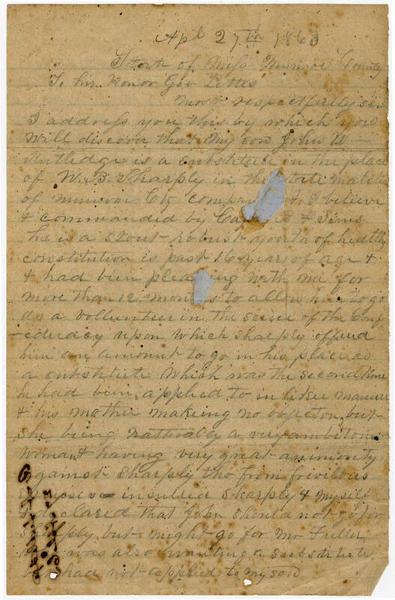 Apl 27th 1863
State of Miss Munroe County
To his Honor Gov Pettes
Most respectfully sir
I address you this by which you
will discover that my son John W
Rutledge is a substitute in the place
of W. B. Sharply in the state malitia
of Munroe Co company I believe
& commanded by F Sims
he is a stout robust youth of healthy
constitution is past 16 years of age &
& had been pleading with me for
more than 12 months to allow him to go
as a vollunteer in the servce of the Conf
ederacy upon which Sharply offerd
him an amount to go in his place as
a substitute which was the second time
he had been applied to in like manner
& his mother making no objection but
she being natturally a very ambitious
woman having very great animosity
against Sharply who from frivilous
insulted Sharply & myself
declared that John should not go for
Sharply but might go for Mr Fuller
was also wanting a substitute
had not applied to my son